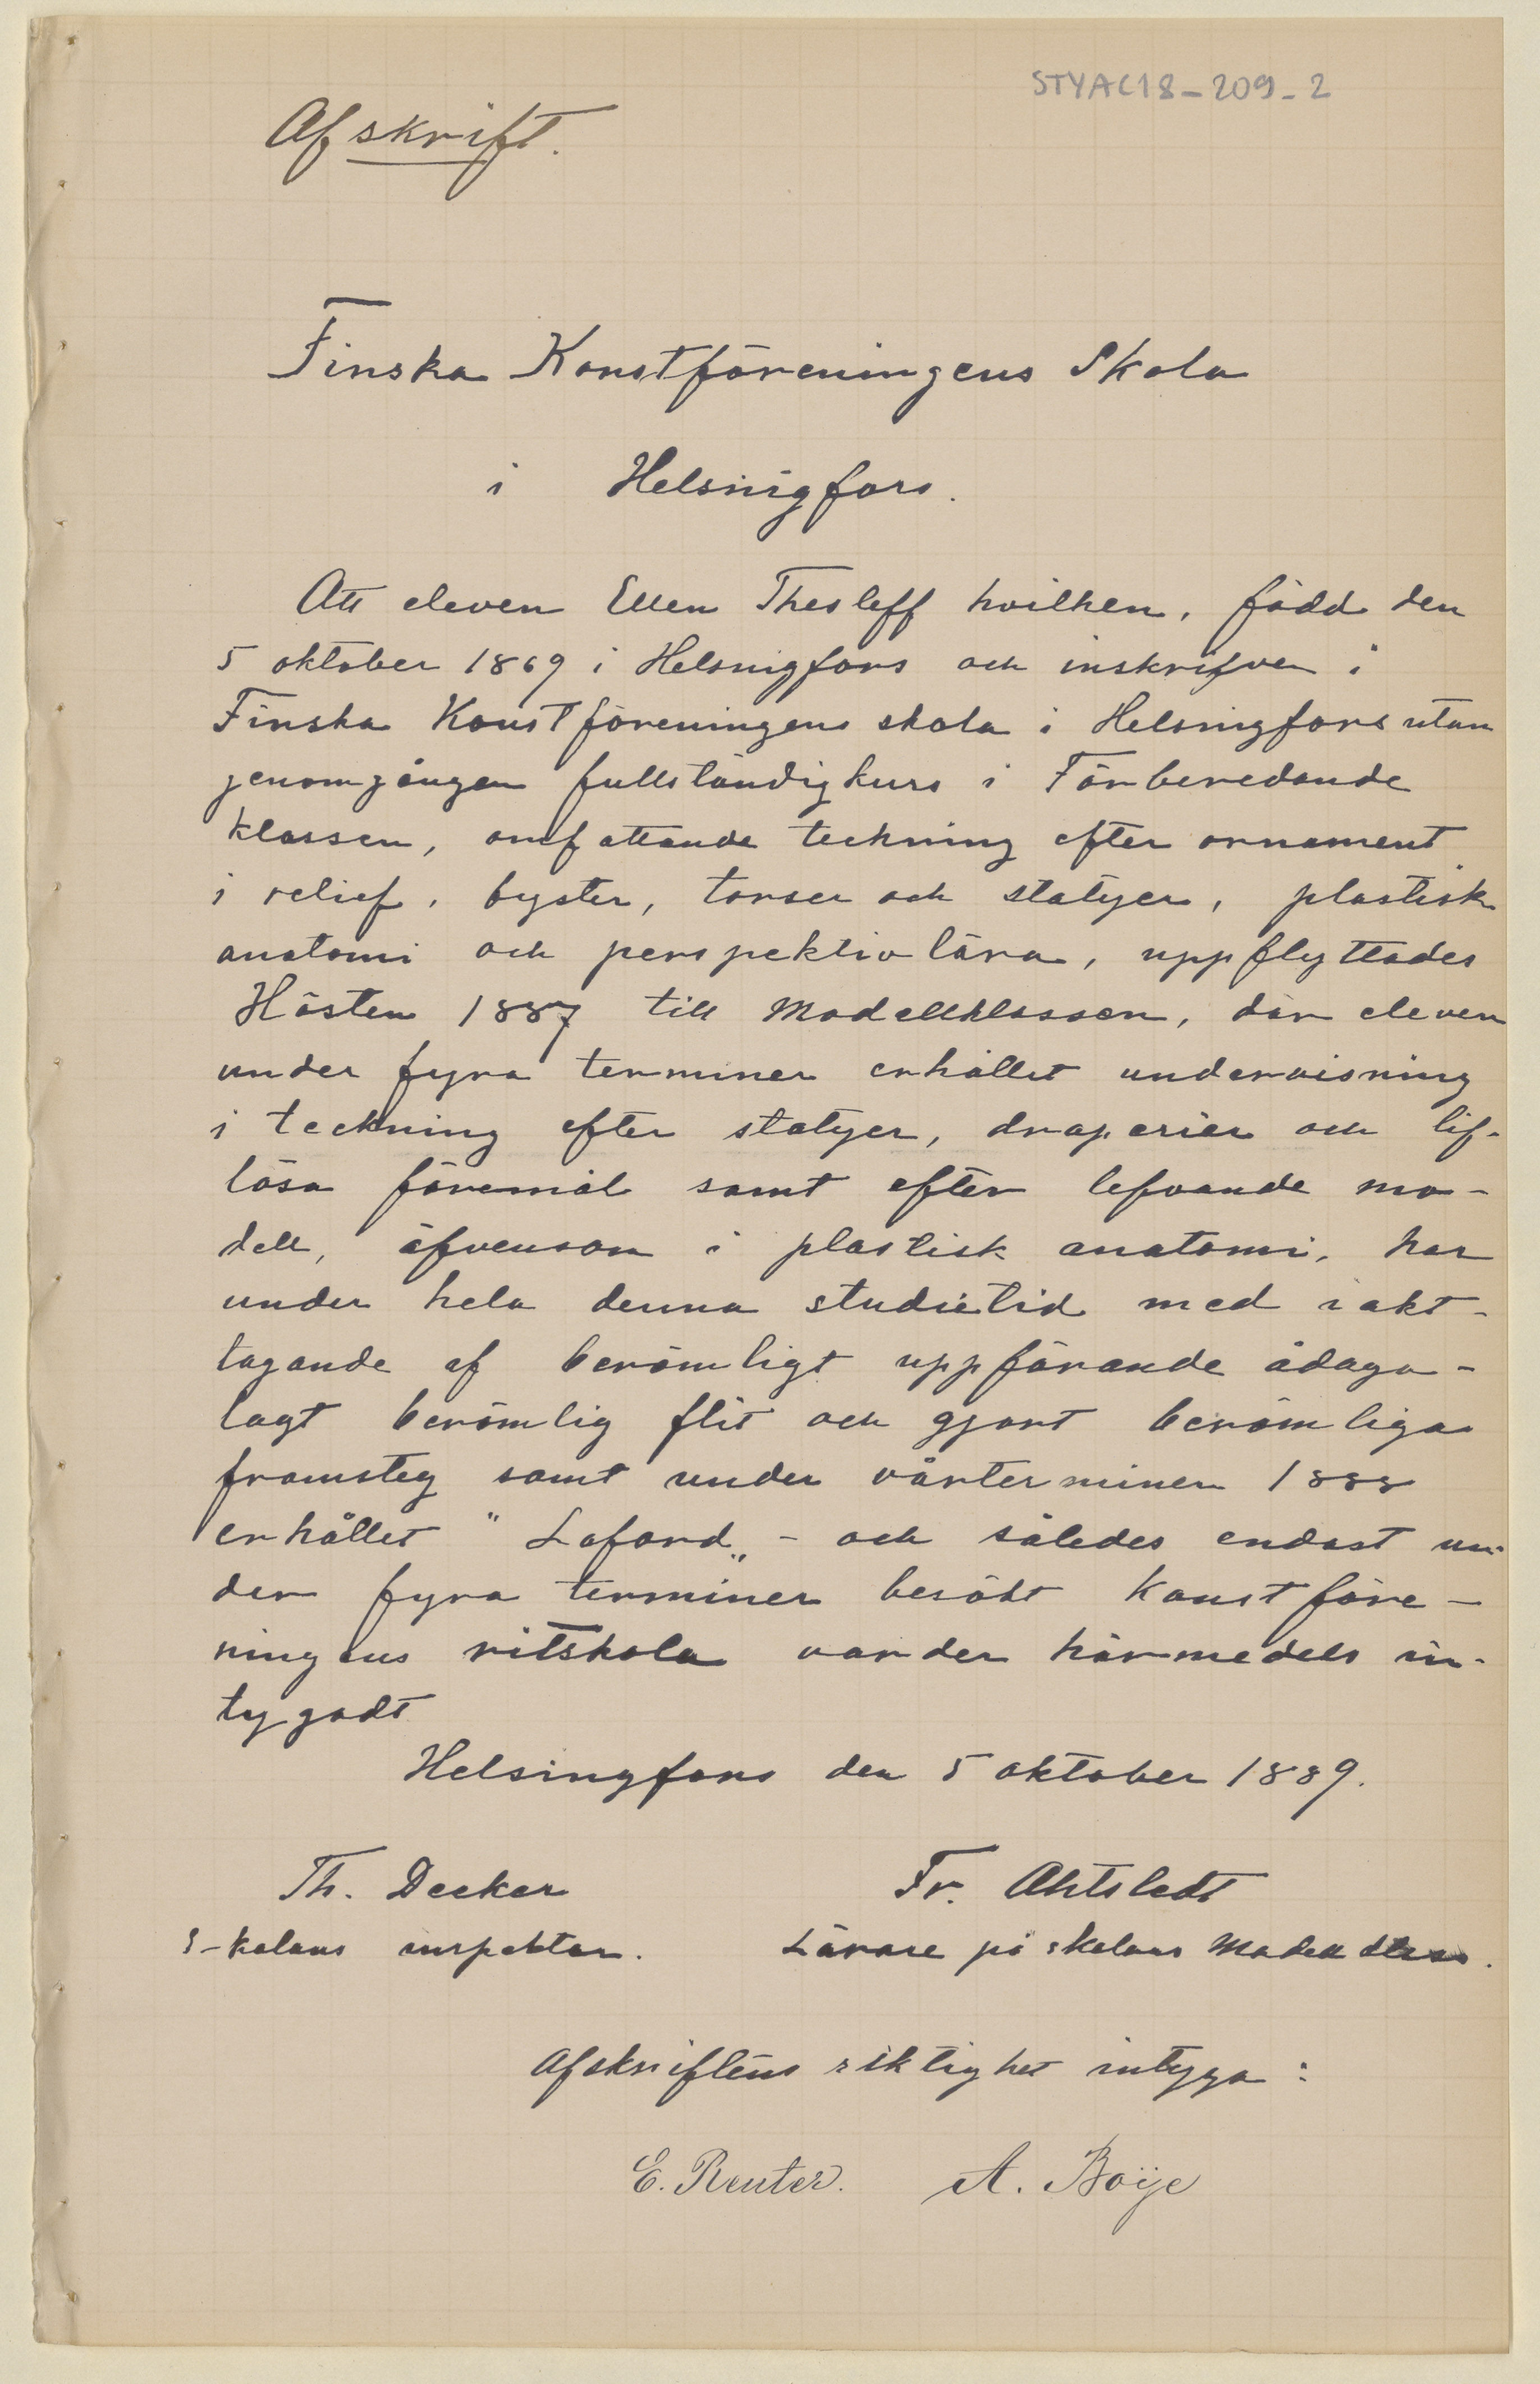 STYAC18-209-2
Afskrift.
Finska Konstföreningens Skola
i Helsingfors.
Att eleven Ellen Thesleff hvilken, född den
5 oktober 1869 i Helsingfors och inskrifven i
Finska Konstföreningens skola i Helsingfors utan
genomgången fullständig kurs i Förberedande
klassen, omfattande teckning efter ornament
i relief, byster, torser och statyer, plastisk
anatomi och perspektivlära, uppflyttades
Hösten 1887 till Modellklassen, där eleven
under fyra terminer erhållet undervisning
i teckning efter statyer, draperier och lif-
lösa föremål samt efter lefvande mo-
dell, äfvensom i plastisk anatomi, har
under hela denna studietid med iakt-
tagande af berömligt uppförande ådaga-
lagt berömlig flit och gjort berömliga
framsteg samt under vårterminen 1888
erhållet "Laford„ - och således endast un-
der fyra terminer besökt Konstföre-
ningens ritskola varder härmedels in-
tygadt
Helsingfors den 5 oktober 1889.
Th. Decker Fr. Ahtstedt
Skolans inspektor. Lärare på skolans Modellklass.
Afskriftens riktighet intyga:
E. Reuter. A. Boije